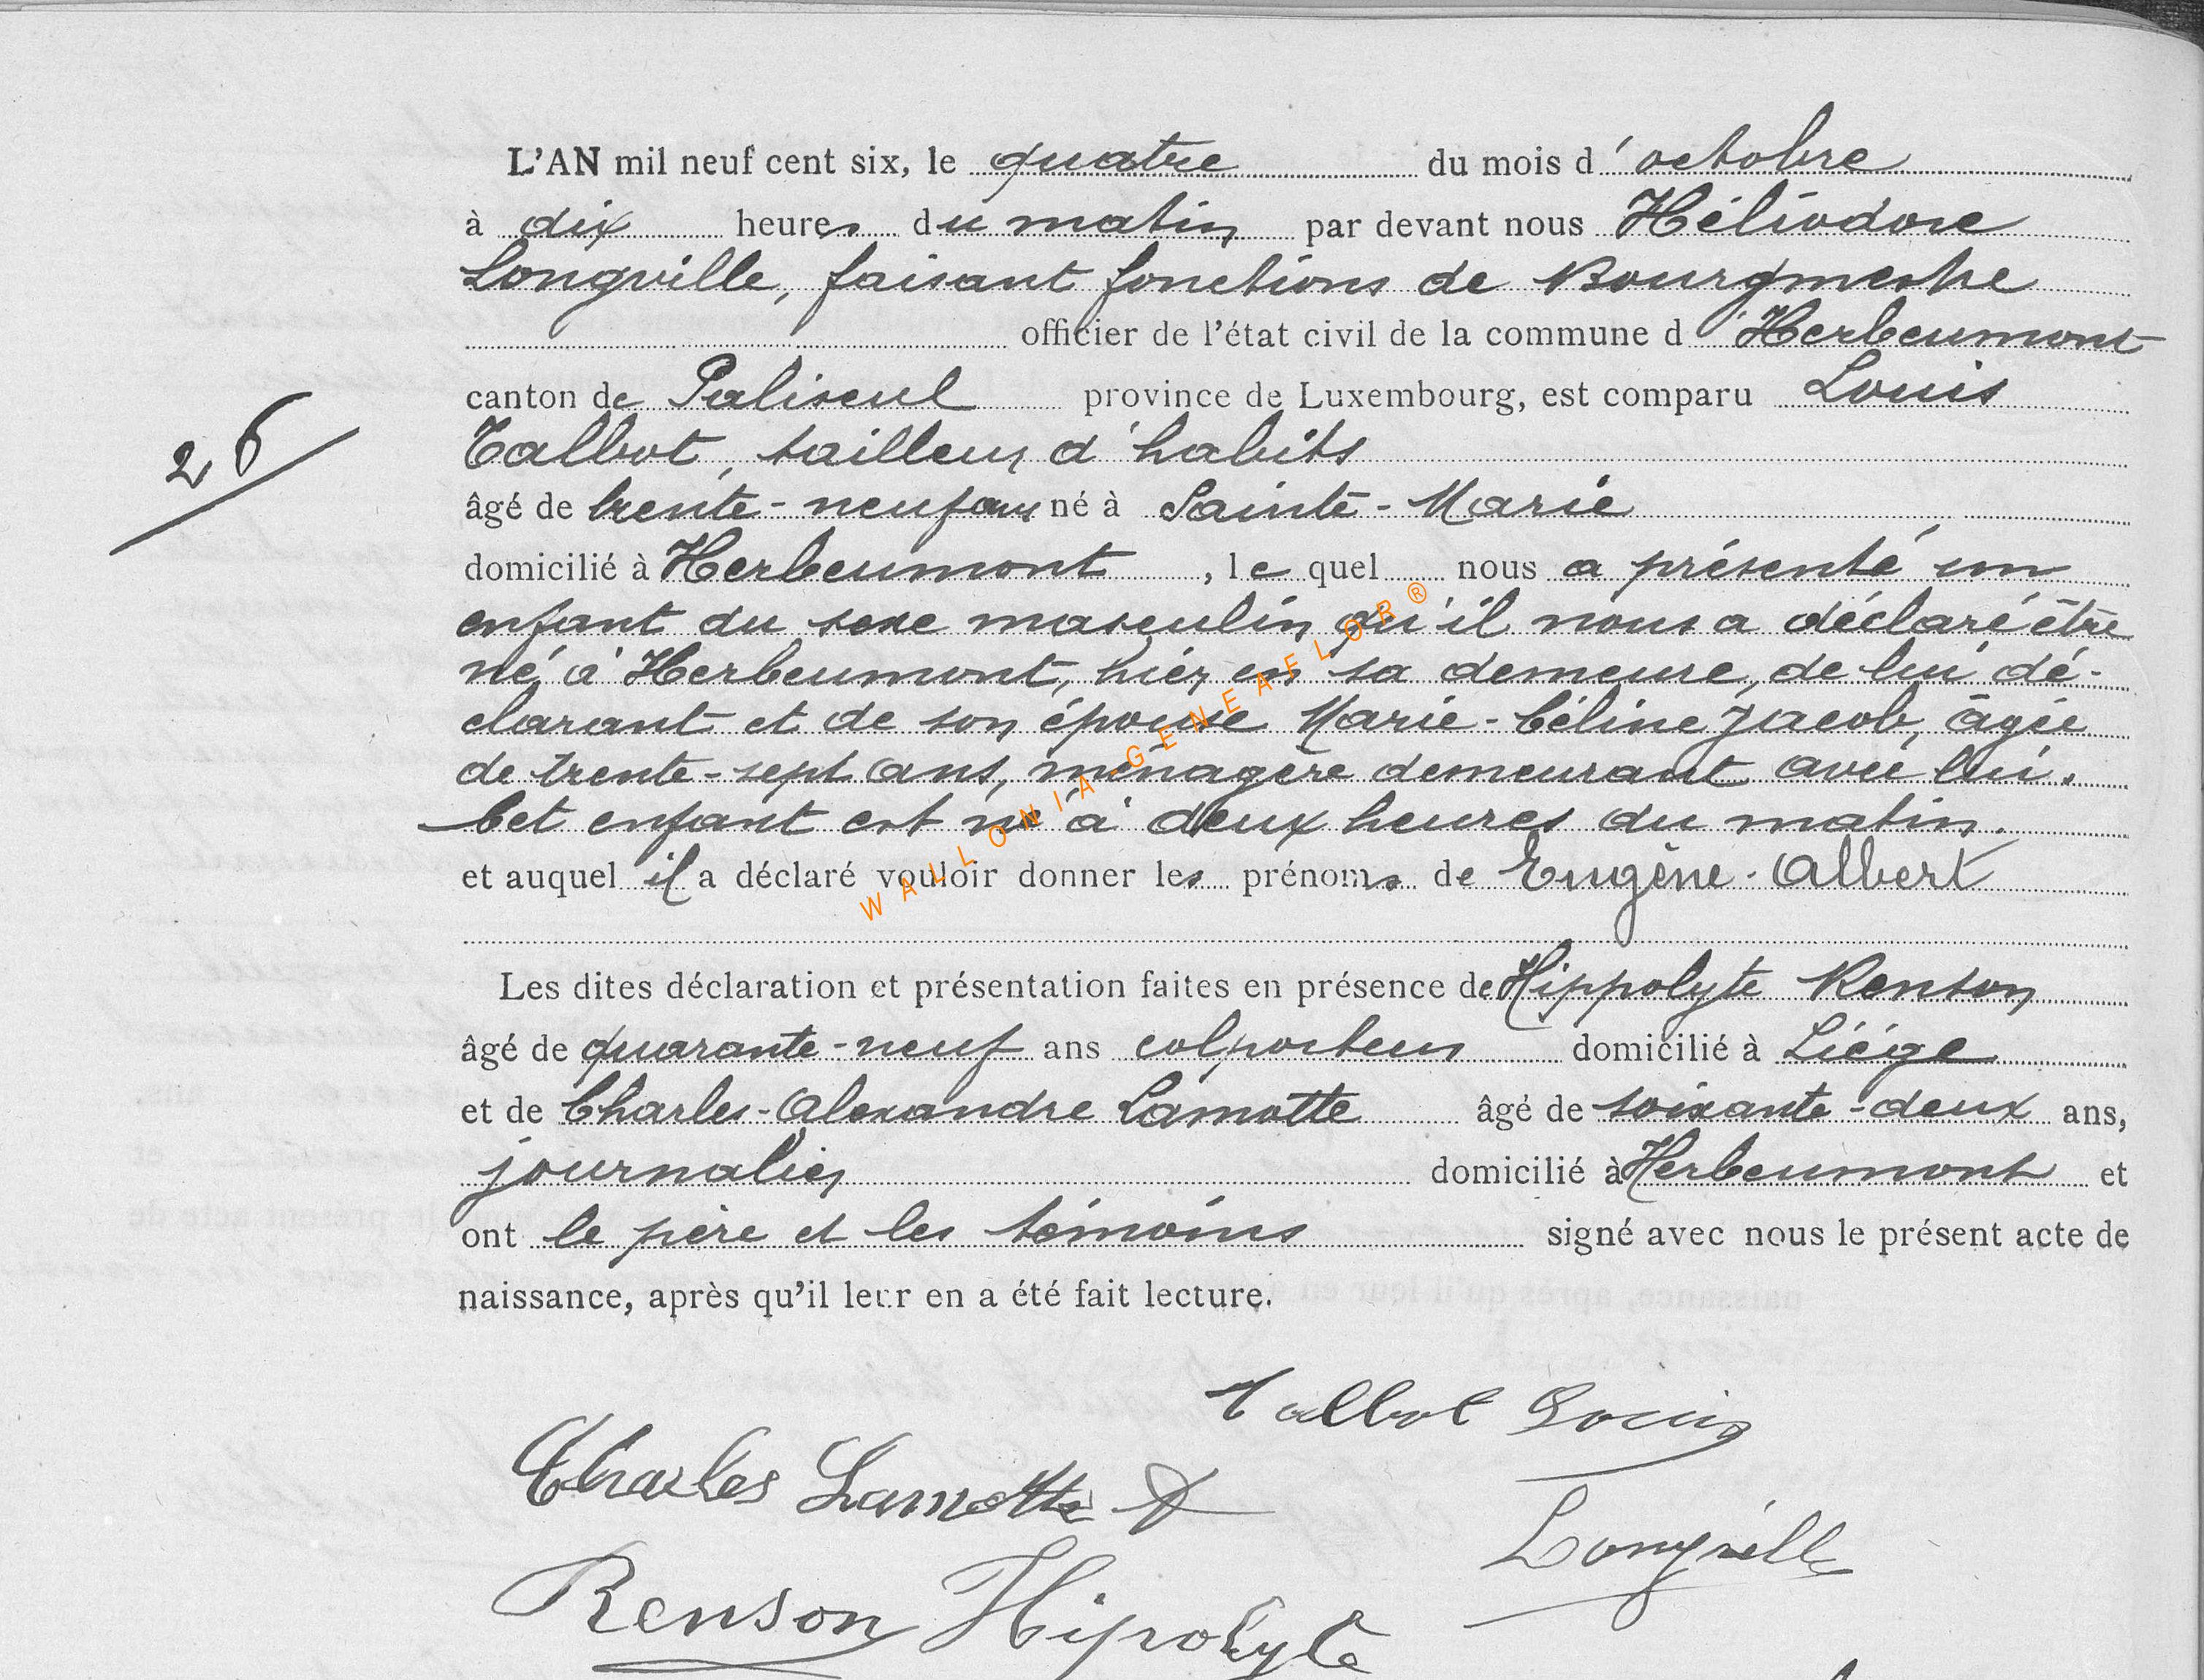 L'AN mil neuf cent six, le quatre du mois d'octobre
à dix heures du matin par devant nous Héliodore
Longville, faisant fonctions de Bourgmestre
officier de l'état civil de la commune d'Herbeumont
canton de Paliseul province de Luxembourg, est comparu Louis
Talbot, tailleur d'habits
âgé de trente-neuf ans né à Sainte-Marie
domicilié à Herbeumont, le quel nous a présenté un
enfant du sexe masculin qu'il nous a déclaré être
né à Herbeumont, hier en sa demeure, de lui dé-
clarant et de son épouse Marie-Céline Jacob, âgée
de trente-sept ans, ménagère demeurant avec lui.
Cet enfant est né à deux heures du matin.
et auquel il a déclaré vouloir donner les prénoms de Eugène-Albert
Les dites déclaration et présentation faites en présence de Hippolyte Renson
âgé de quarante-neuf ans colporteur domicilié à Liége
et de Charles-Alexandre Lamotte âgé de soixante-deux ans,
journalier domicilié à Herbeumont et
ont le père et les témoins signé avec nous le présent acte de
naissance, après qu'il leur en a été fait lecture.
26
Talbot Louis
Charles Lamotte
Longville
Renson Hipolyte
WALLONIA-GENEAFLOR®